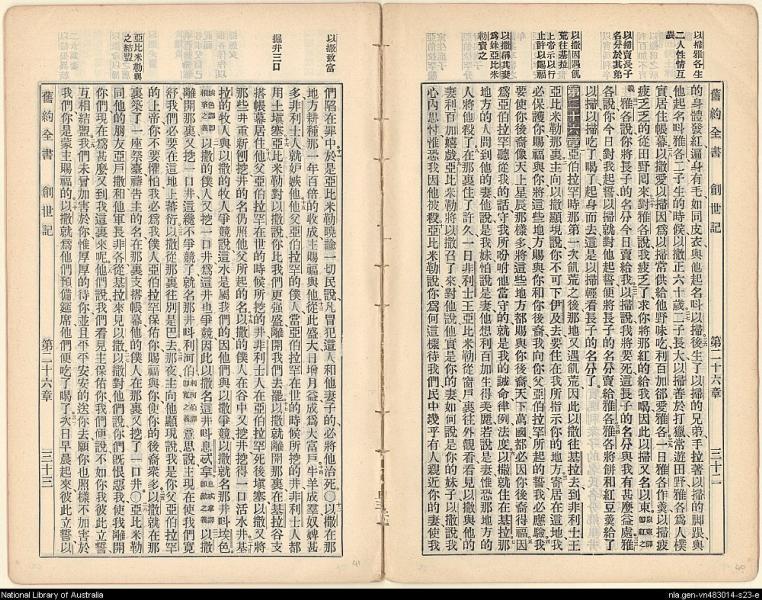 以掃雅各生
二人性情互異
以掃賣長子
名分於其弟
以撒因遇飢
荒往基拉
上帝示以行
止許以賜福
以撒稱其妻
為妹亞比米
勒責之
舊約全書 創世記 第二十六章 三十二
的身體發紅渾身有毛如同皮衣與他起名叫以掃後生了以掃的兄弟手拉著以掃的腳跟與
他起名叫雅各二子生的時候以撒正六十歲二子長大以掃善於打獵常遊田野雅各為人樸
實居住帳幕以撒愛以掃因為以掃常供給他野味吃利百加卻愛雅各一日雅各作羹以掃疲
疲乏乏的從田野回來對雅各說我疲乏了求你將那紅的給我喝因此以掃又名以東
雅各說你將長子的名分今日賣給我以掃說我將要死這長子的名分與我有甚麼益處雅
各說你今日對我起誓以掃就對他起誓便將長子的名分賣給雅各雅各將餅和紅豆羹給了
以掃以掃吃了喝了起身而去這是以掃輕看長子的名分了
第二十六章 亞伯拉罕時那第一次飢荒之後那地又遇飢荒因此以撒往基拉去到非利士王
亞比米勒那裏主向以撒顯現說你不可下伊及去要住在我所指示你的地方寄居在這地我
必保護你賜福與你將這些地方賜與你和你後裔我向你父亞伯拉罕所起的誓我必應驗我
要使你後裔像天上星辰那樣多將這些地方都賜與你後裔天下萬國都必因你後裔得福因
為亞伯拉罕聽從我的話守我所吩咐他當守的就是我的誡命律例法度以撒就住在基拉那
地方的人問到他的妻他說是我妹他怕說是妻他想利百加生得美麗若說是妻惟恐那地方的
人將他殺了在那裏住了許久一日非利士王亞比米勒從窗戶裏往外觀看看見以撒與他的
妻利百加嬉戲亞比米勒將以撒召了來對他說他實是你的妻如何說是你的妹子以撒說我
心內思忖惟恐我因他被殺亞比米勒說你為何這樣待我們民中幾乎有人親近你的妻使我
以撒致富
掘井三口
亞比米勒與
之結盟
們陷在罪中於是亞比米勒曉諭一切民說凡冒犯這人和他妻子的必將他治死○以撒在那
地方耕種那一年有百倍的收成主賜福與他從此盛大日增月益成為大富戶牛羊成羣奴婢甚
多非利士人就妒嫉他他父亞伯拉罕的僕人當亞伯拉罕在世的時候所挖的井非利士人都
用土塡塞亞比米勒對以撒說你比我們更強盛離開我們去罷以撒就離開那裏在基拉谷支
搭帳幕居住他父亞伯拉罕在世的時候所挖的井非利士人在亞伯拉罕死後塡塞以撒又將
那些井重新刨挖井的名仍照他父所起的名以撒的僕人在谷中又挖井挖得一口活水井基
拉的牧人與以撒的牧人爭競說這水是屬我們的因他們與以撒爭競以撒就名那井叫埃色
以撒的僕人又挖一口井為這井也爭競因此以撒名這井叫息忒拿 以撒
離開那裏又挖一口井這纔不爭競了就名那井叫利河伯 意思說主現在使我們寬
舒我們必要在這地生畜衍以撒從那裏往別是巴去那夜主向他顯現說我是你父亞伯拉罕
的上帝你不要懼怕我必為我僕人亞伯拉罕保佑你賜福與你使你的後裔衆多以撒就在那
裏築了一座祭壇禱告主的名在那裏支搭帳幕他的僕人在那裏又挖了一口井○亞比米勒
同他的朋友亞戶撒和他軍長非各從基拉來見以撒以撒對他們說你們既恨惡我使我離開
你們現在為甚麼又到我這裏來呢他們說我們看見主保佑你我們便說不如你我彼此立誓
互相結盟我們未曾加害於你惟厚厚的待你並且平平安安的送你去願你也照樣不加害於
我們你是蒙主賜福的以撒就為他們預備筵席他們便吃了喝了次日早晨起來彼此立誓以
舊約全書 創世記 第二十六章 三十三
National Library of Australia
nla.gen-vn483014-s23-e